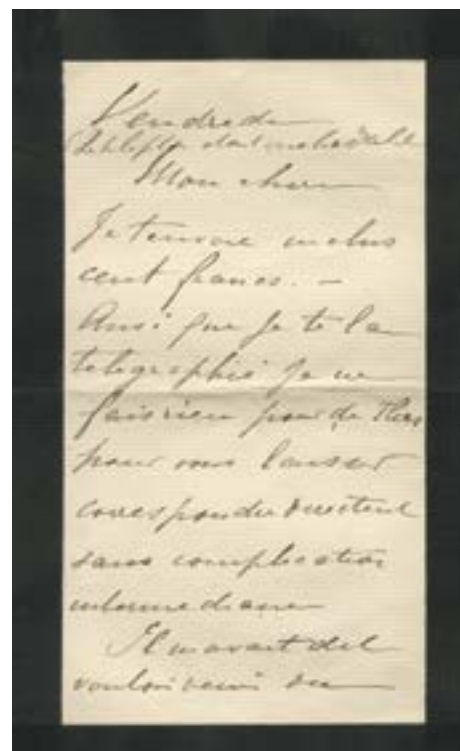 Vendredi
Mon cher
Je t'envoie inclus
cent francs. –
Ainsi que je te l'a
telegraphié je ne
fais rien pour de
pour vous laisser
correspondre directent
sans complication
intermediaire
Il m'avait dit
vouloir venir